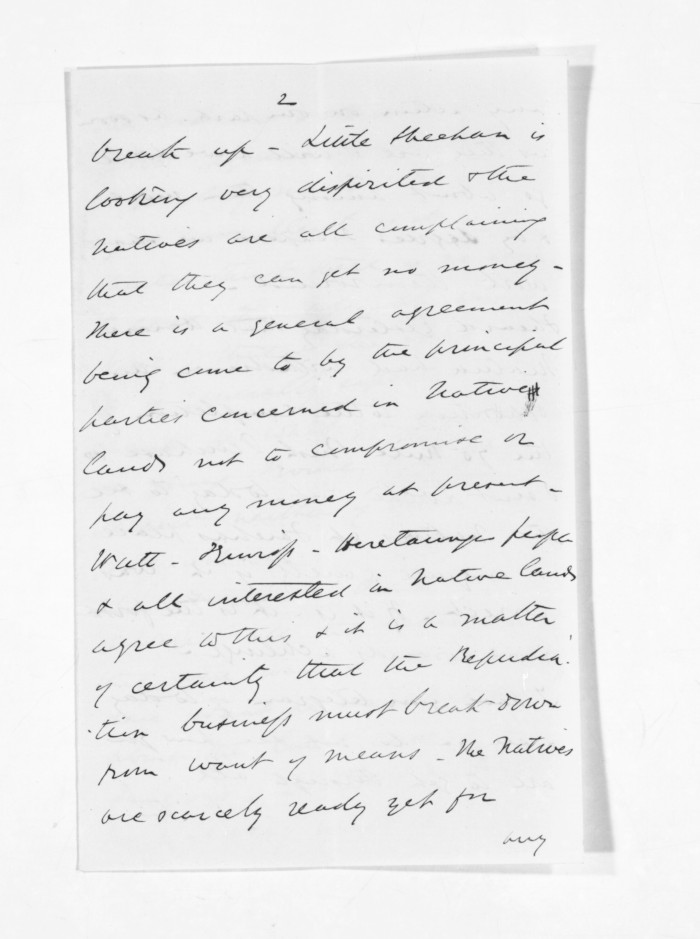 2
break up - Little Sheehan is
looking very dispirited & the
Natives are all complaining
that they can get no money -
There is a general agreement
being come to by the principal
parties concerned in Native
lands not to compromise or
pay any money at present -
Watt - - Heretaunga people
& all interested in Native lands
agree to this & it is a matter
of certainty that the Repudia-
-tion business must break down
from want of means - The Natives
are scarcely ready yet for
any